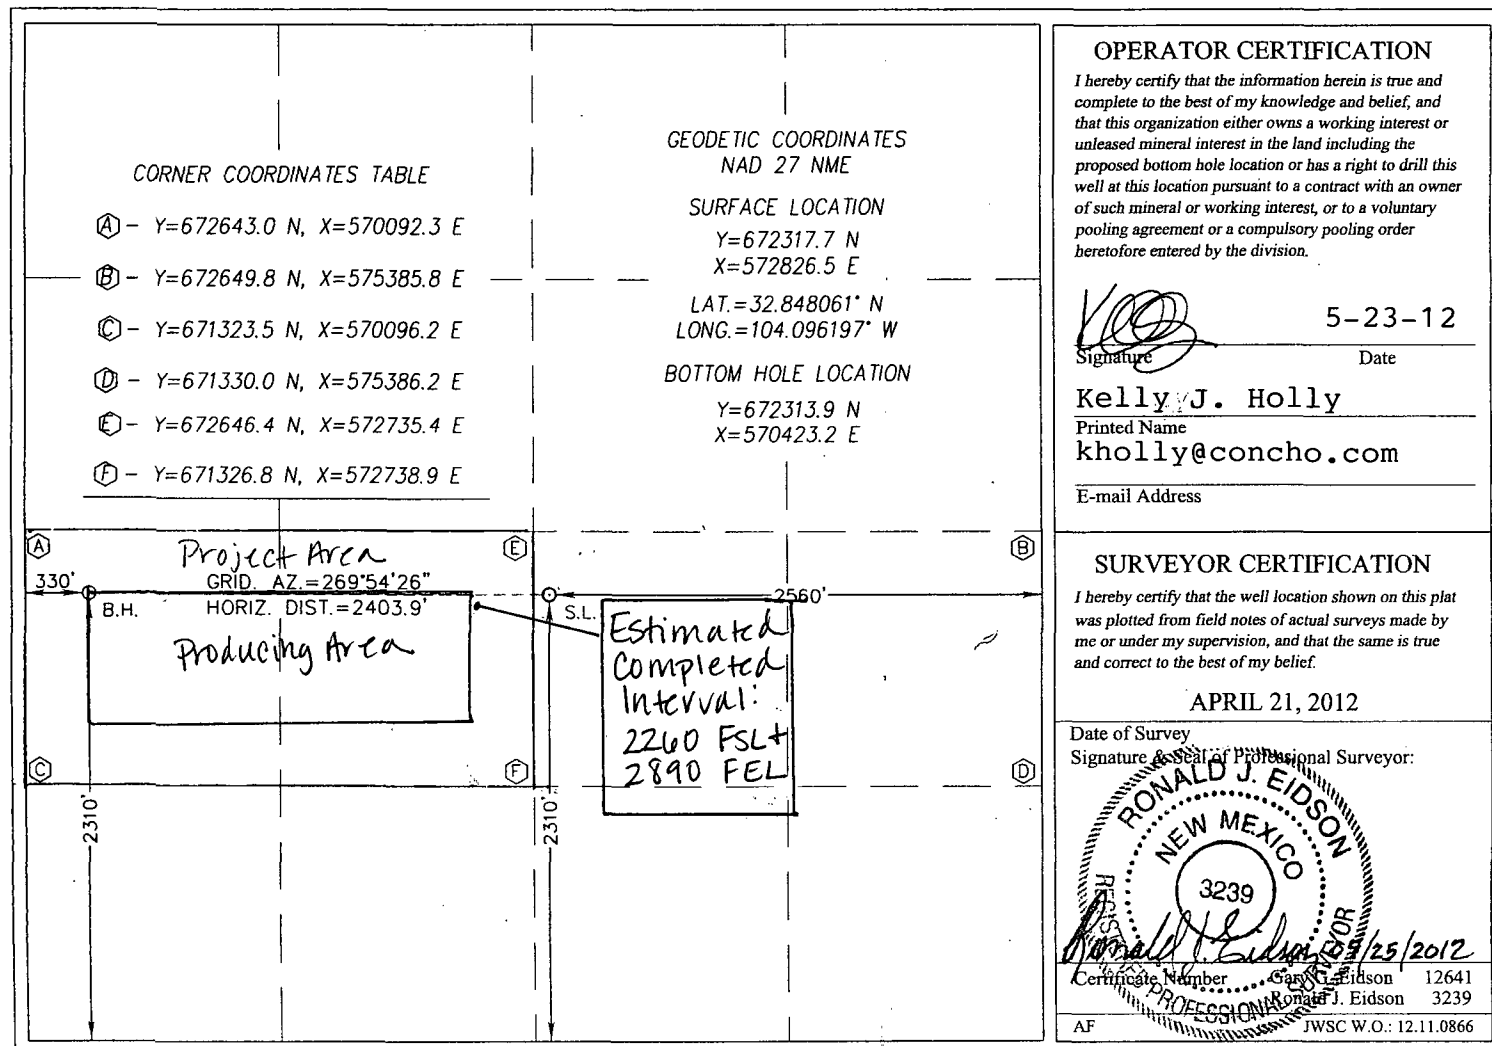 CORNER COORDINATES TABLE
Ⓐ - Y=672643.0 N, X=570092.3 E
Ⓑ - Y=672649.8 N, X=575385.8 E
Ⓒ - Y=671323.5 N, X=570096.2 E
Ⓓ - Y=671330.0 N, X=575386.2 E
Ⓔ - Y=672646.4 N, X=572735.4 E
Ⓕ - Y=671326.8 N, X=572738.9 E
GEODETIC COORDINATES
NAD 27 NME
SURFACE LOCATION
Y=672317.7 N
X=572826.5 E
LAT.=32.848061° N
LONG.=104.096197° W
BOTTOM HOLE LOCATION
Y=672313.9 N
X=570423.2 E
A
E
B
Project Area
330'
GRID. AZ.=269°54'26"
B.H.
HORIZ. DIST.=2403.9'
Producing Area
S.L.
2560'
Estimated
Completed
Interval:
2260 FSL+
2890 FEL
C
F
D
2310'
2310'
OPERATOR CERTIFICATION
I hereby certify that the information herein is true and
complete to the best of my knowledge and belief, and
that this organization either owns a working interest or
unleased mineral interest in the land including the
proposed bottom hole location or has a right to drill this
well at this location pursuant to a contract with an owner
of such mineral or working interest, or to a voluntary
pooling agreement or a compulsory pooling order
heretofore entered by the division.
5-23-12
Signature Date
Kelly J. Holly
Printed Name
kholly@concho.com
E-mail Address
SURVEYOR CERTIFICATION
I hereby certify that the well location shown on this plat
was plotted from field notes of actual surveys made by
me or under my supervision, and that the same is true
and correct to the best of my belief.
APRIL 21, 2012
Date of Survey
Signature & Seal of Professional Surveyor:
RONALD J. EIDSON
NEW MEXICO
3239
REGISTERED PROFESSIONAL SURVEYOR
Ronald J. Eidson 05/25/2012
Certificate Number Gary G. Eidson 12641
Ronald J. Eidson 3239
AF JWSC W.O.: 12.11.0866